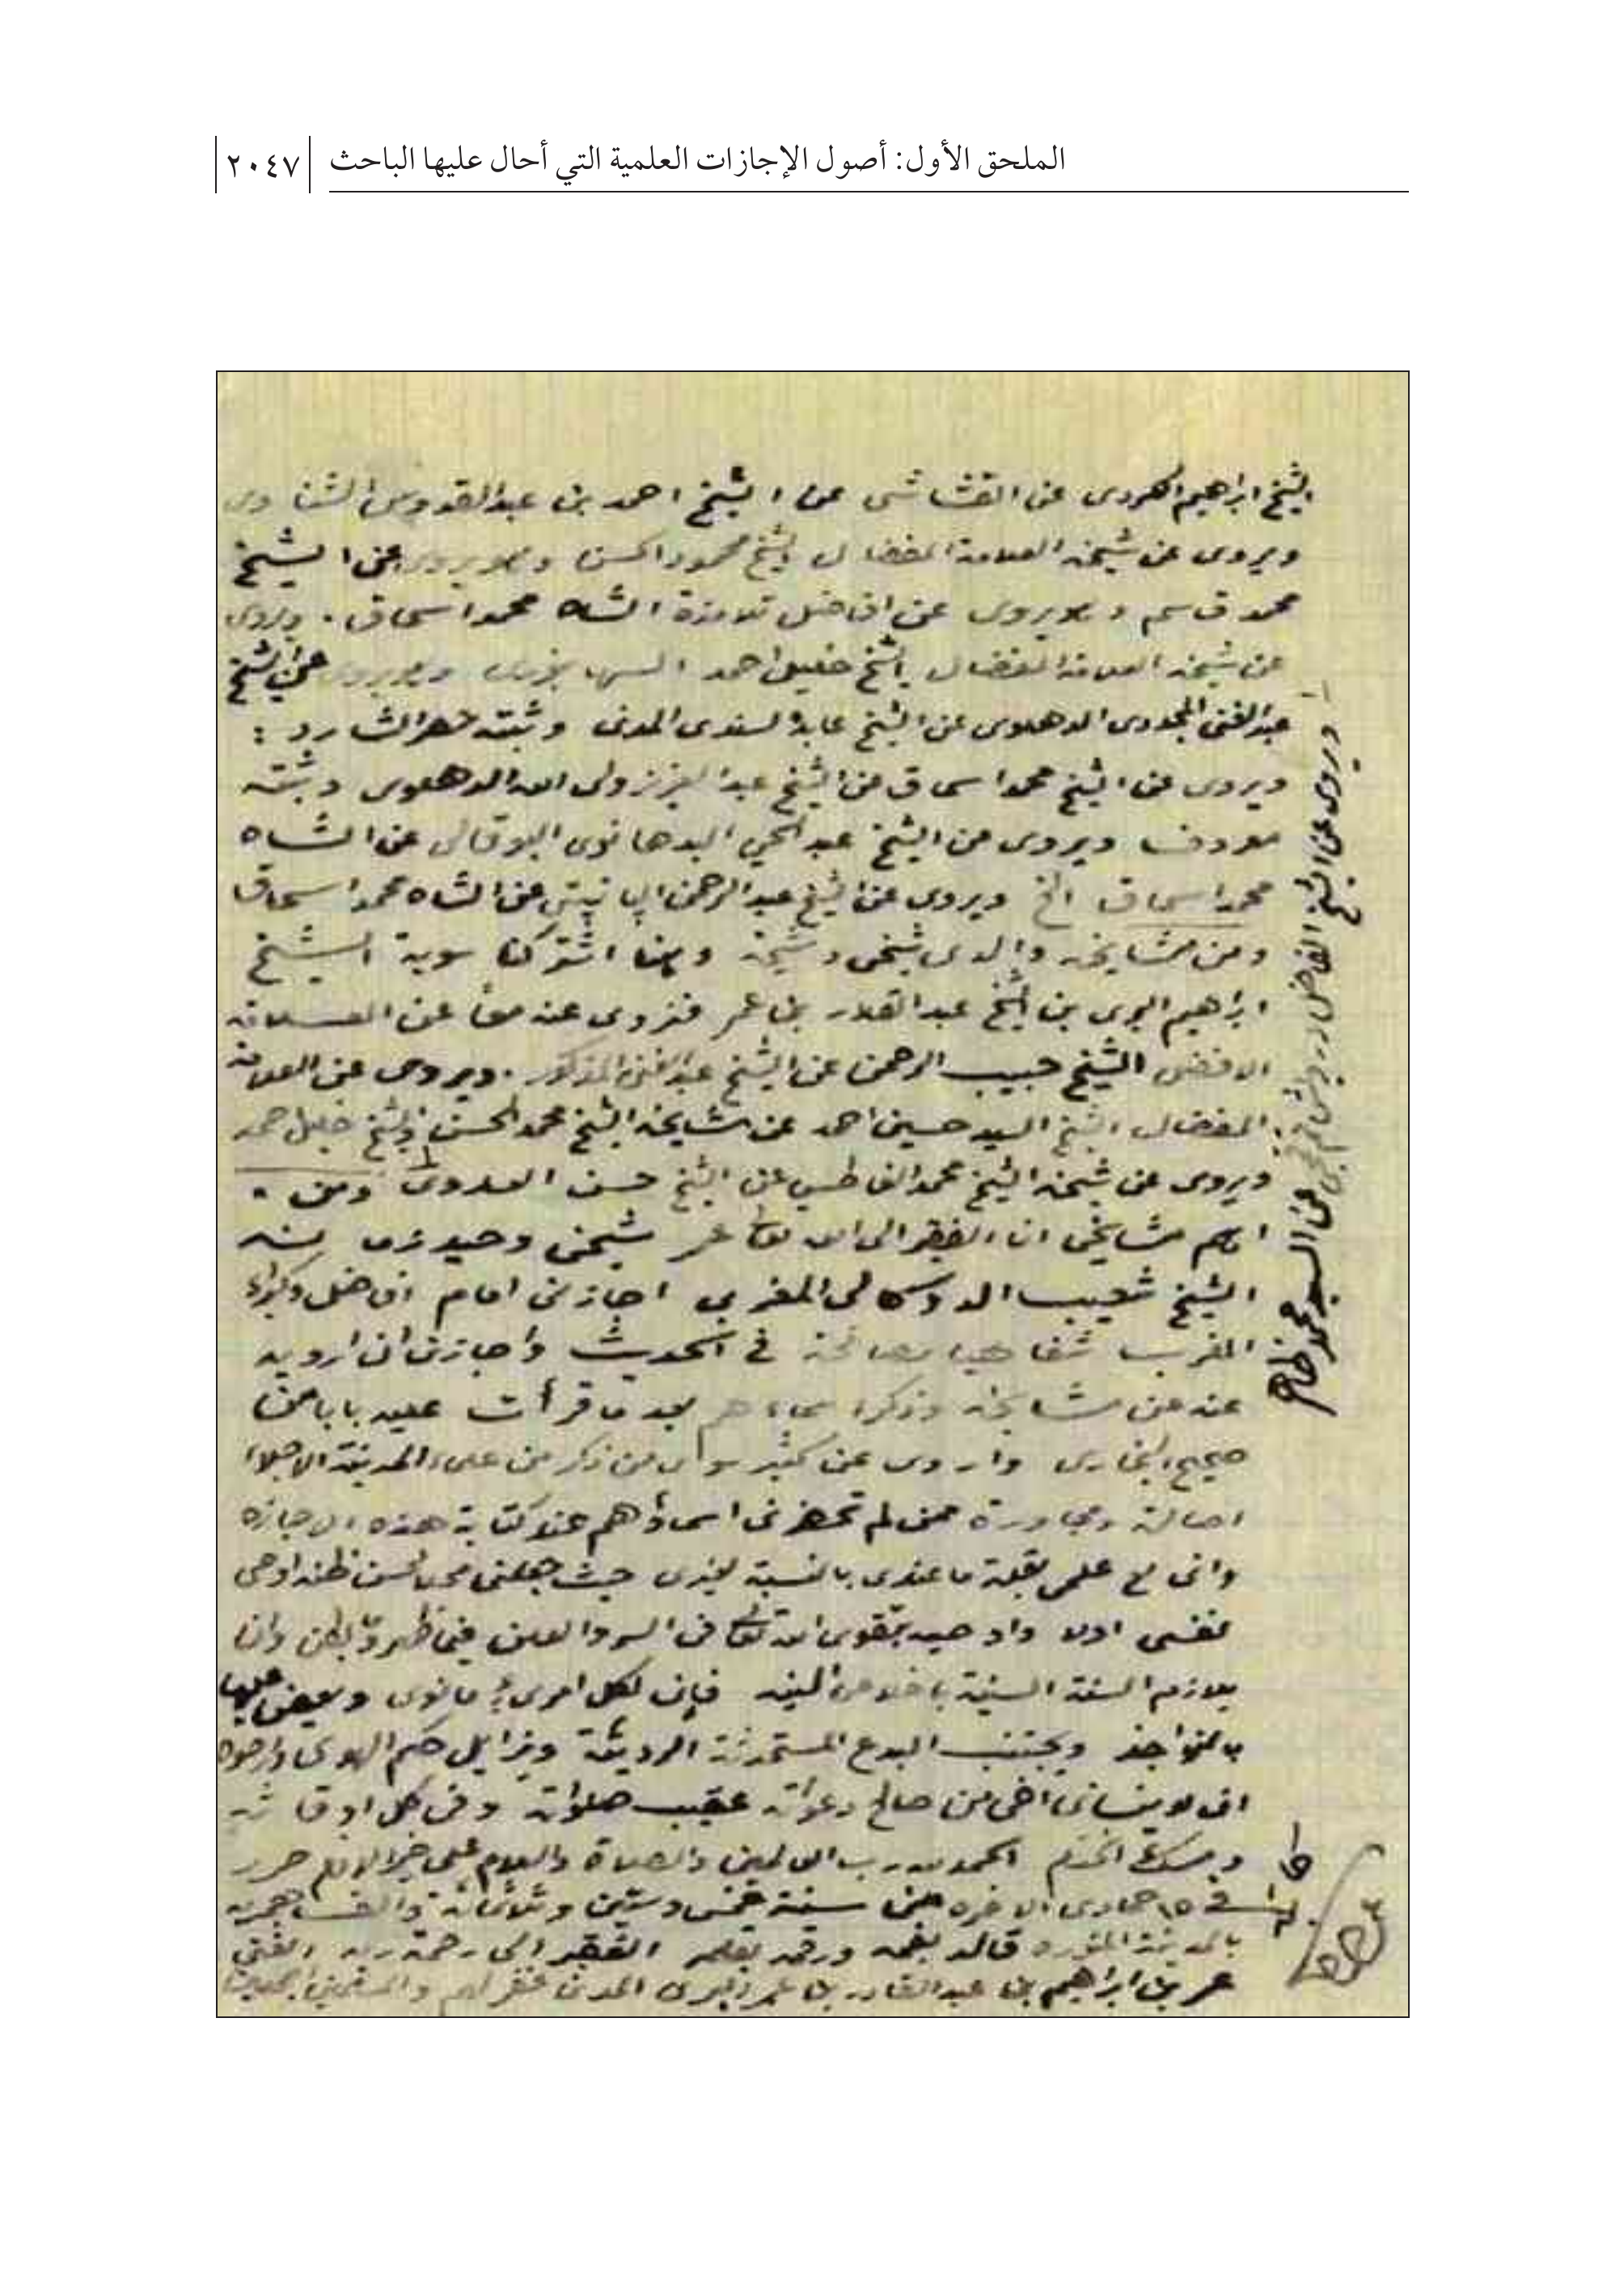 الملحق الأول: أصول الإجازات العلمية التي أحال عليها الباحث | ٢٠٤٧
الشيخ ابراهيم الكردى عن القشاشى عن الشيخ احمد بن عبدالقدوس الشناوى
ويروى عن شيخه العلامة المفضال الشيخ محمود الحسن وهو يروى عن الشيخ
محمد قاسم وهو يروى عن افاضل تلامذة الشاه محمد اسحاق . ويروى
عن شيخه العلامة المفضال الشيخ خليل احمد السهارنفورى وهو يروى عن الشيخ
عبدالغنى المجددى الدهلوى عن الشيخ عابد السندى المدنى وثبته حصر الشارد :
ويروى عن الشيخ محمد اسحاق عن الشيخ عبدالعزيز ولى الله الدهلوى وثبته
معروف ويروى عن الشيخ عبدالحي البدهانوى البوفالى عن الشاه
محمد اسحاق الخ ويروى عن الشيخ عبدالرحمن البانيبتى عن الشاه محمد اسحاق
ومن مشايخه والدى شيخى وشيخه وممن اشتركنا سوية الشيخ
ابراهيم البرى بن الشيخ عبدالقادر بن عمر فنروى عنه معاً عن العلامة
الافضل الشيخ حبيب الرحمن عن الشيخ عبدالغنى المذكور . ويروى عن العلامة
المفضال الشيخ السيد حسين احمد عن مشايخه الشيخ محمود الحسن والشيخ خليل احمد
ويروى عن شيخه الشيخ محمد الفا عن الشيخ حسن العدوى ومن
اهم مشايخى انا الفقير الى الله تعالى عمر شيخى وحيد زمانه
الشيخ شعيب الدوكالى المغربي اجازنى امام افاضل وكبراء
المغرب شفاهيا ومصافحة في الحديث واجازنى ان ارويه
عنه عن مشايخه وذكر اسماءهم بعد ما قرأت عليه بابا من
صحيح البخارى واروى عن كثير سوى من ذكر من علماء المدينة الاجلاء
اصالة ومجاورة ممن لم تحضرنى اسماؤهم عند كتابة هذه الاجازة
وانى مع علمى بقلة ما عندى بالنسبة لغيرى حيث جعلنى محل لحسن ظنه اوصى
نفسى اولا واوصيه بتقوى الله تعالى فى السر والعلن فيما ظهر وما بطن وان
يلازم السنة السنية باخلاص النية فإن لكل امرىء ما نوى ويعض عليها
بالنواجذ ويجتنب البدع المستحدثة الرديئة ويزايل حكم الهوى وارجوه
ان لا ينسانى اخى من صالح دعواته عقيب صلواته وفى كل اوقاته
ومسك الختام الحمد لله رب العالمين والصلاة والسلام على خير الانام حرر
في ١٥ جمادى الاخره من سنة خمس وستين وثلاثمائة والف هجرية
بالمدينة المنوره قاله بفمه ورقمه بقلمه الفقير الى رحمة ربه الغنى
عمر بن ابراهيم بن عبدالقادر بن عمر البرى المدنى غفر لهم وللمسلمين اجمعين
ويروى عن الشيخ الفاضل عن السيد محمد ظاهر